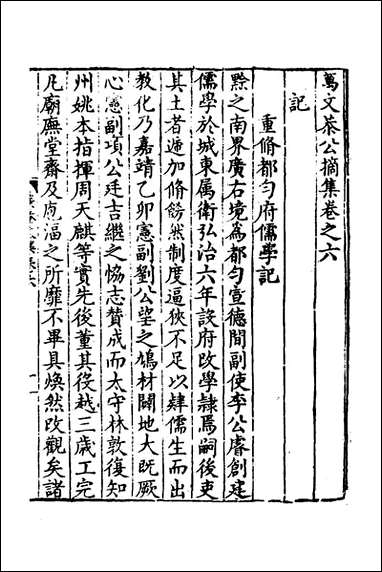 萬文恭公摘集卷之六
記
重脩都勻府儒學記
黔之南界廣右境為都勻宣德間副使李公睿創建
儒學於城東属衛弘治六年設府改學隷焉嗣後吏
其土者遞加脩餝然制度逼狹不足以肄儒生而出
教化乃嘉靖乙卯憲副劉公望之鳩材闢地大既厥
心憲副項公廷吉繼之恊志賛成而太守林敦復知
州姚本指揮周天麒等實先後董其役越三歲工完
凡廟廡堂齋及庖湢之所靡不畢具煥然改觀矣諸